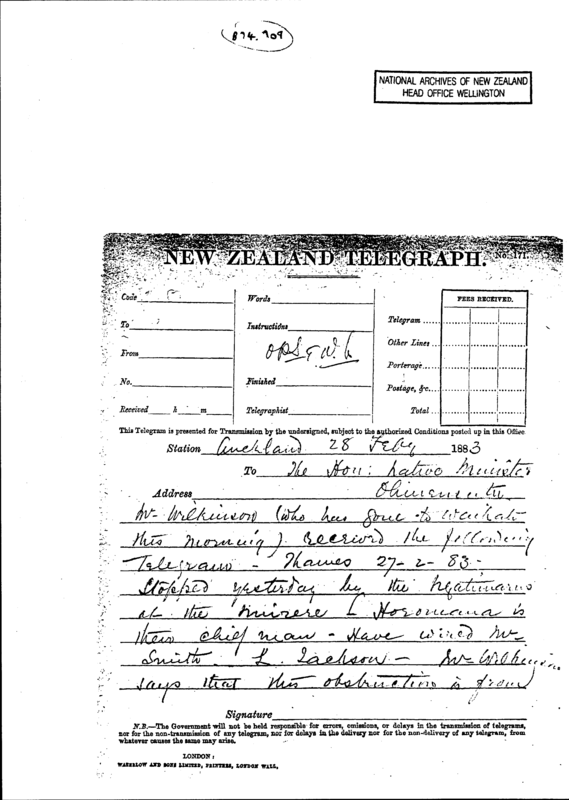 874.909
NATIONAL ARCHIVES OF NEW ZEALAND
HEAD OFFICE WELLINGTON
NEW ZEALAND TELEGRAPH. No. 171.
Code
Words
FEES RECEIVED.
To
Instructions
Telegram
Other Lines
From
Porterage
No.
Finished
Postage, &c.
Received h m
Telegraphist
Total
This Telegram is presented for Transmission by the undersigned, subject to the authorized Conditions posted up in this Office
Station Auckland 28 Feby 1883
To The Hon: Native Minister
Address
Mr Wilkinson (who has gone to Waikato
this morning). Received the following
Telegram - Thames 27-2-83-
Stopped yesterday by the Ngatimarus
at the L Horomona is
their chief man - Have wired Mr
Smith. L. Jackson - Mr Wilkinson
says that this obstruction is from
Signature
N.B.—The Government will not be held responsible for errors, omissions, or delays in the transmission of telegrams,
nor for the non-transmission of any telegram, nor for delays in the delivery nor for the non-delivery of any telegram, from
whatever causes the same may arise.
LONDON:
WATERLOW AND SONS LIMITED, PRINTERS, LONDON WALL.